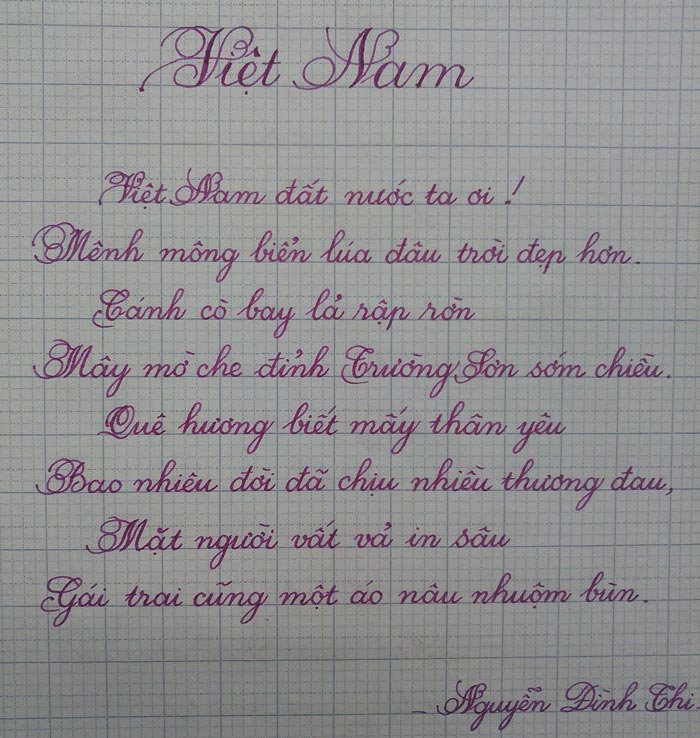 Việt Nam
Việt Nam đất nước ta ơi!
Mênh mông biển lúa đâu trời đẹp hơn.
Cánh cò bay lả rập rờn
Mây mờ che đỉnh Trường Sơn sớm chiều.
Quê hương biết mấy thân yêu
Bao nhiêu đời đã chịu nhiều thương đau,
Mặt người vất vả in sâu
Gái trai cũng một áo nâu nhuộm bùn.
- Nguyễn Đình Thi.